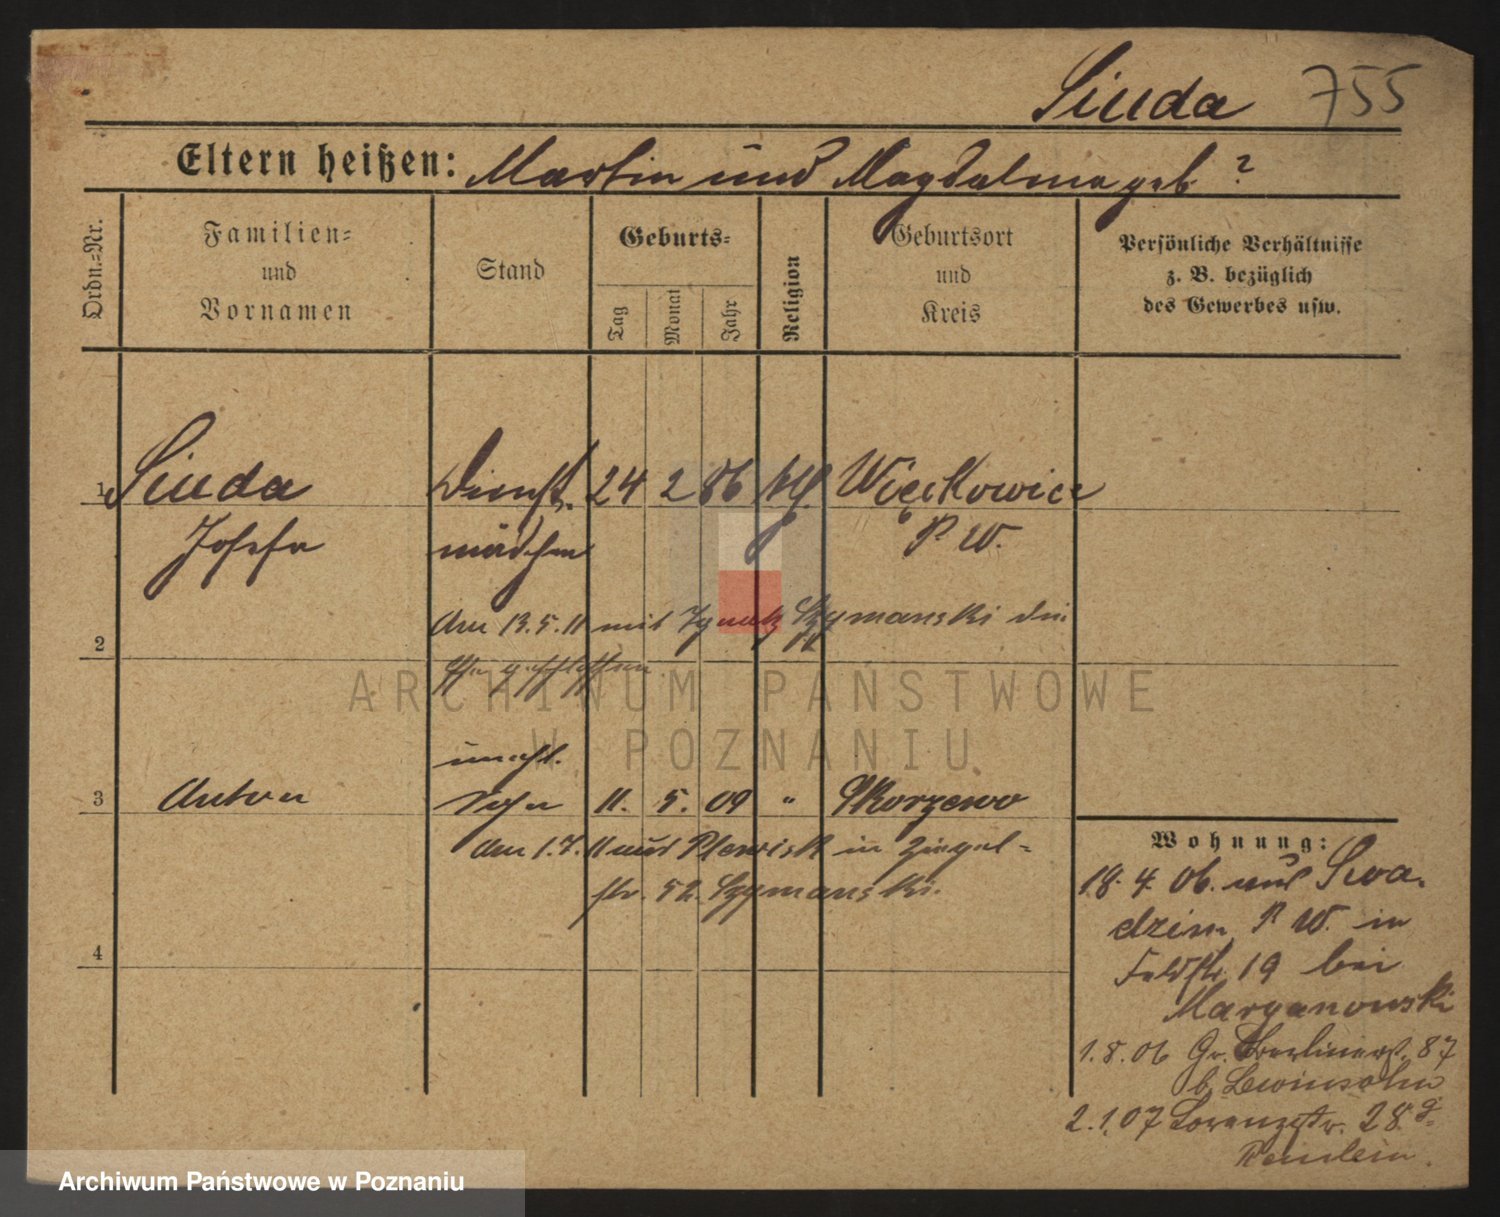 Siuda 755
Eltern heißen: Martin und Magdalena geb. ?
Ordn.-Nr.
Familien-
und
Vornamen
Stand
Geburts-
Tag
Monat
Jahr
Religion
Geburtsort
und
Kreis
Persönliche Verhältnisse
z. B. bezüglich
des Gewerbes usw.
1 Siuda Dienst. 24 2 86 kth. Więckowice
Josefa mädchen P. W.
2 den 13.5.11 mit Ignatz Szymanski die
Ehe geschlossen
unehl.
3 Anton Sohn 11. 5. 09 " Skorzewo
den 1.7.11 aus Plewisk in Ziegel-
str. 52. Szymanski.
4
Wohnung:
18. 4. 06. aus Swa-
dzim P. W. in
Feldstr. 19 bei
Marganowski
1.8.06 Gr. Berlinerst. 87
b. Lewinsohn
2.1.07 Lorenzstr. 28
ARCHIWUM PAŃSTWOWE
W POZNANIU
Archiwum Państwowe w Poznaniu